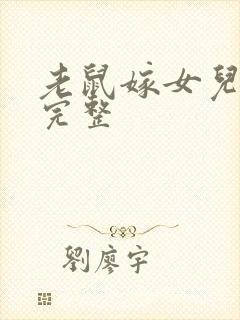 老鼠嫁女兒
完整
劉廖宇